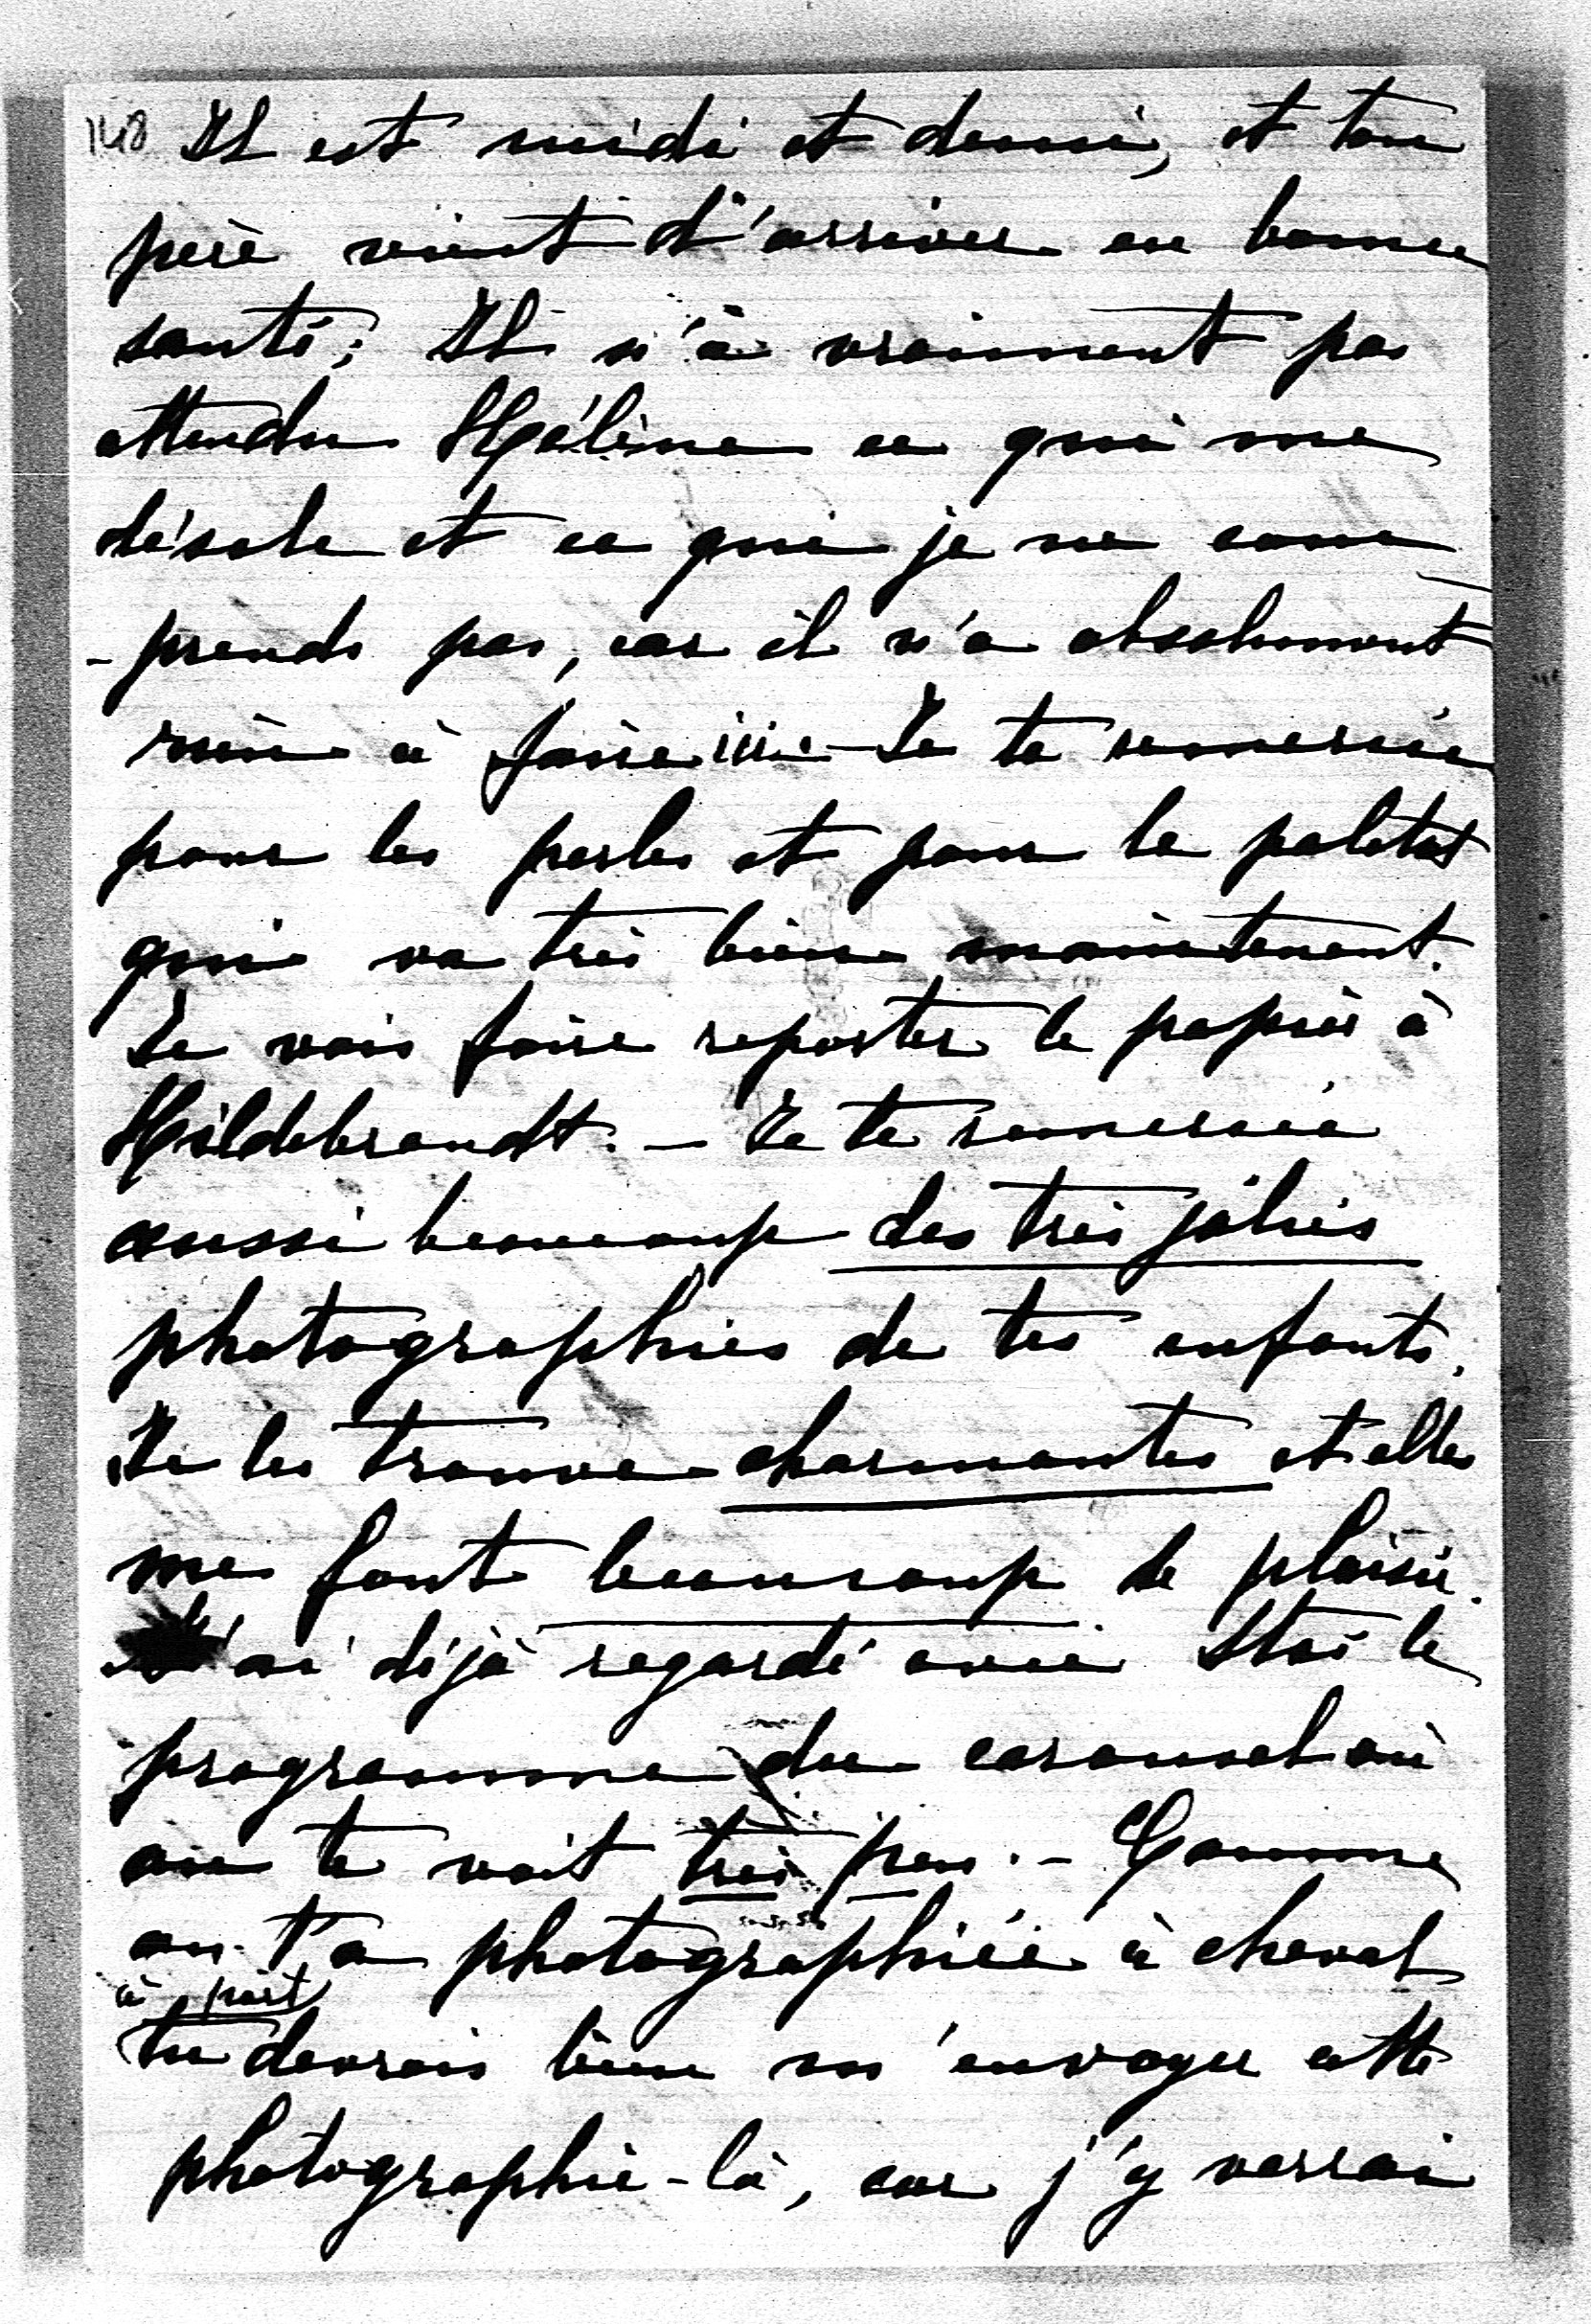 148 Il est midi et demi, et ton
père vient d'arriver en bonne
santé; Il n'a vraiment pas
attendu Hélène ce qui me
désole et ce que je ne com
-prends pas, car il n'a absolument
rien à faire ici. — Je te remercie
pour les perles et pour le paletot
qui va très bien maintenant.
Je vais faire reporter le papier à
Hildebrandt. — Je te remercie
aussi beaucoup des très jolies
photographies de tes enfants.
Je les trouve charmantes et elles
me font beaucoup de plaisir.
J'ai déjà regardé avec le
programme du carousel où
on te voit très peu. — Comme
on t'a photographiée à cheval
à part
tu devrais bien m'envoyer cette
photographie-là, car j'y verrai